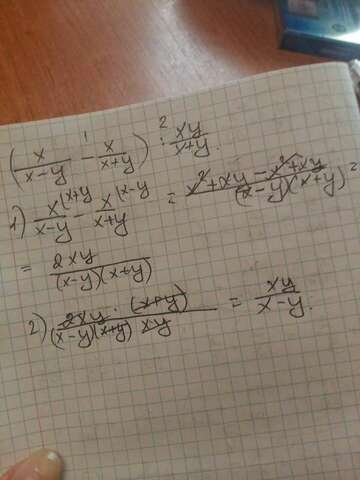 (x/(x-y) - x/(x+y)) : xy/(x+y).
1 2
1) x(x+y/(x-y) - x(x-y/(x+y) = (x²+xy-x²+xy)/((x-y)(x+y)) =
= 2xy/((x-y)(x+y))
2) 2xy·(x+y)/((x-y)(x+y) xy) = xy/(x-y).